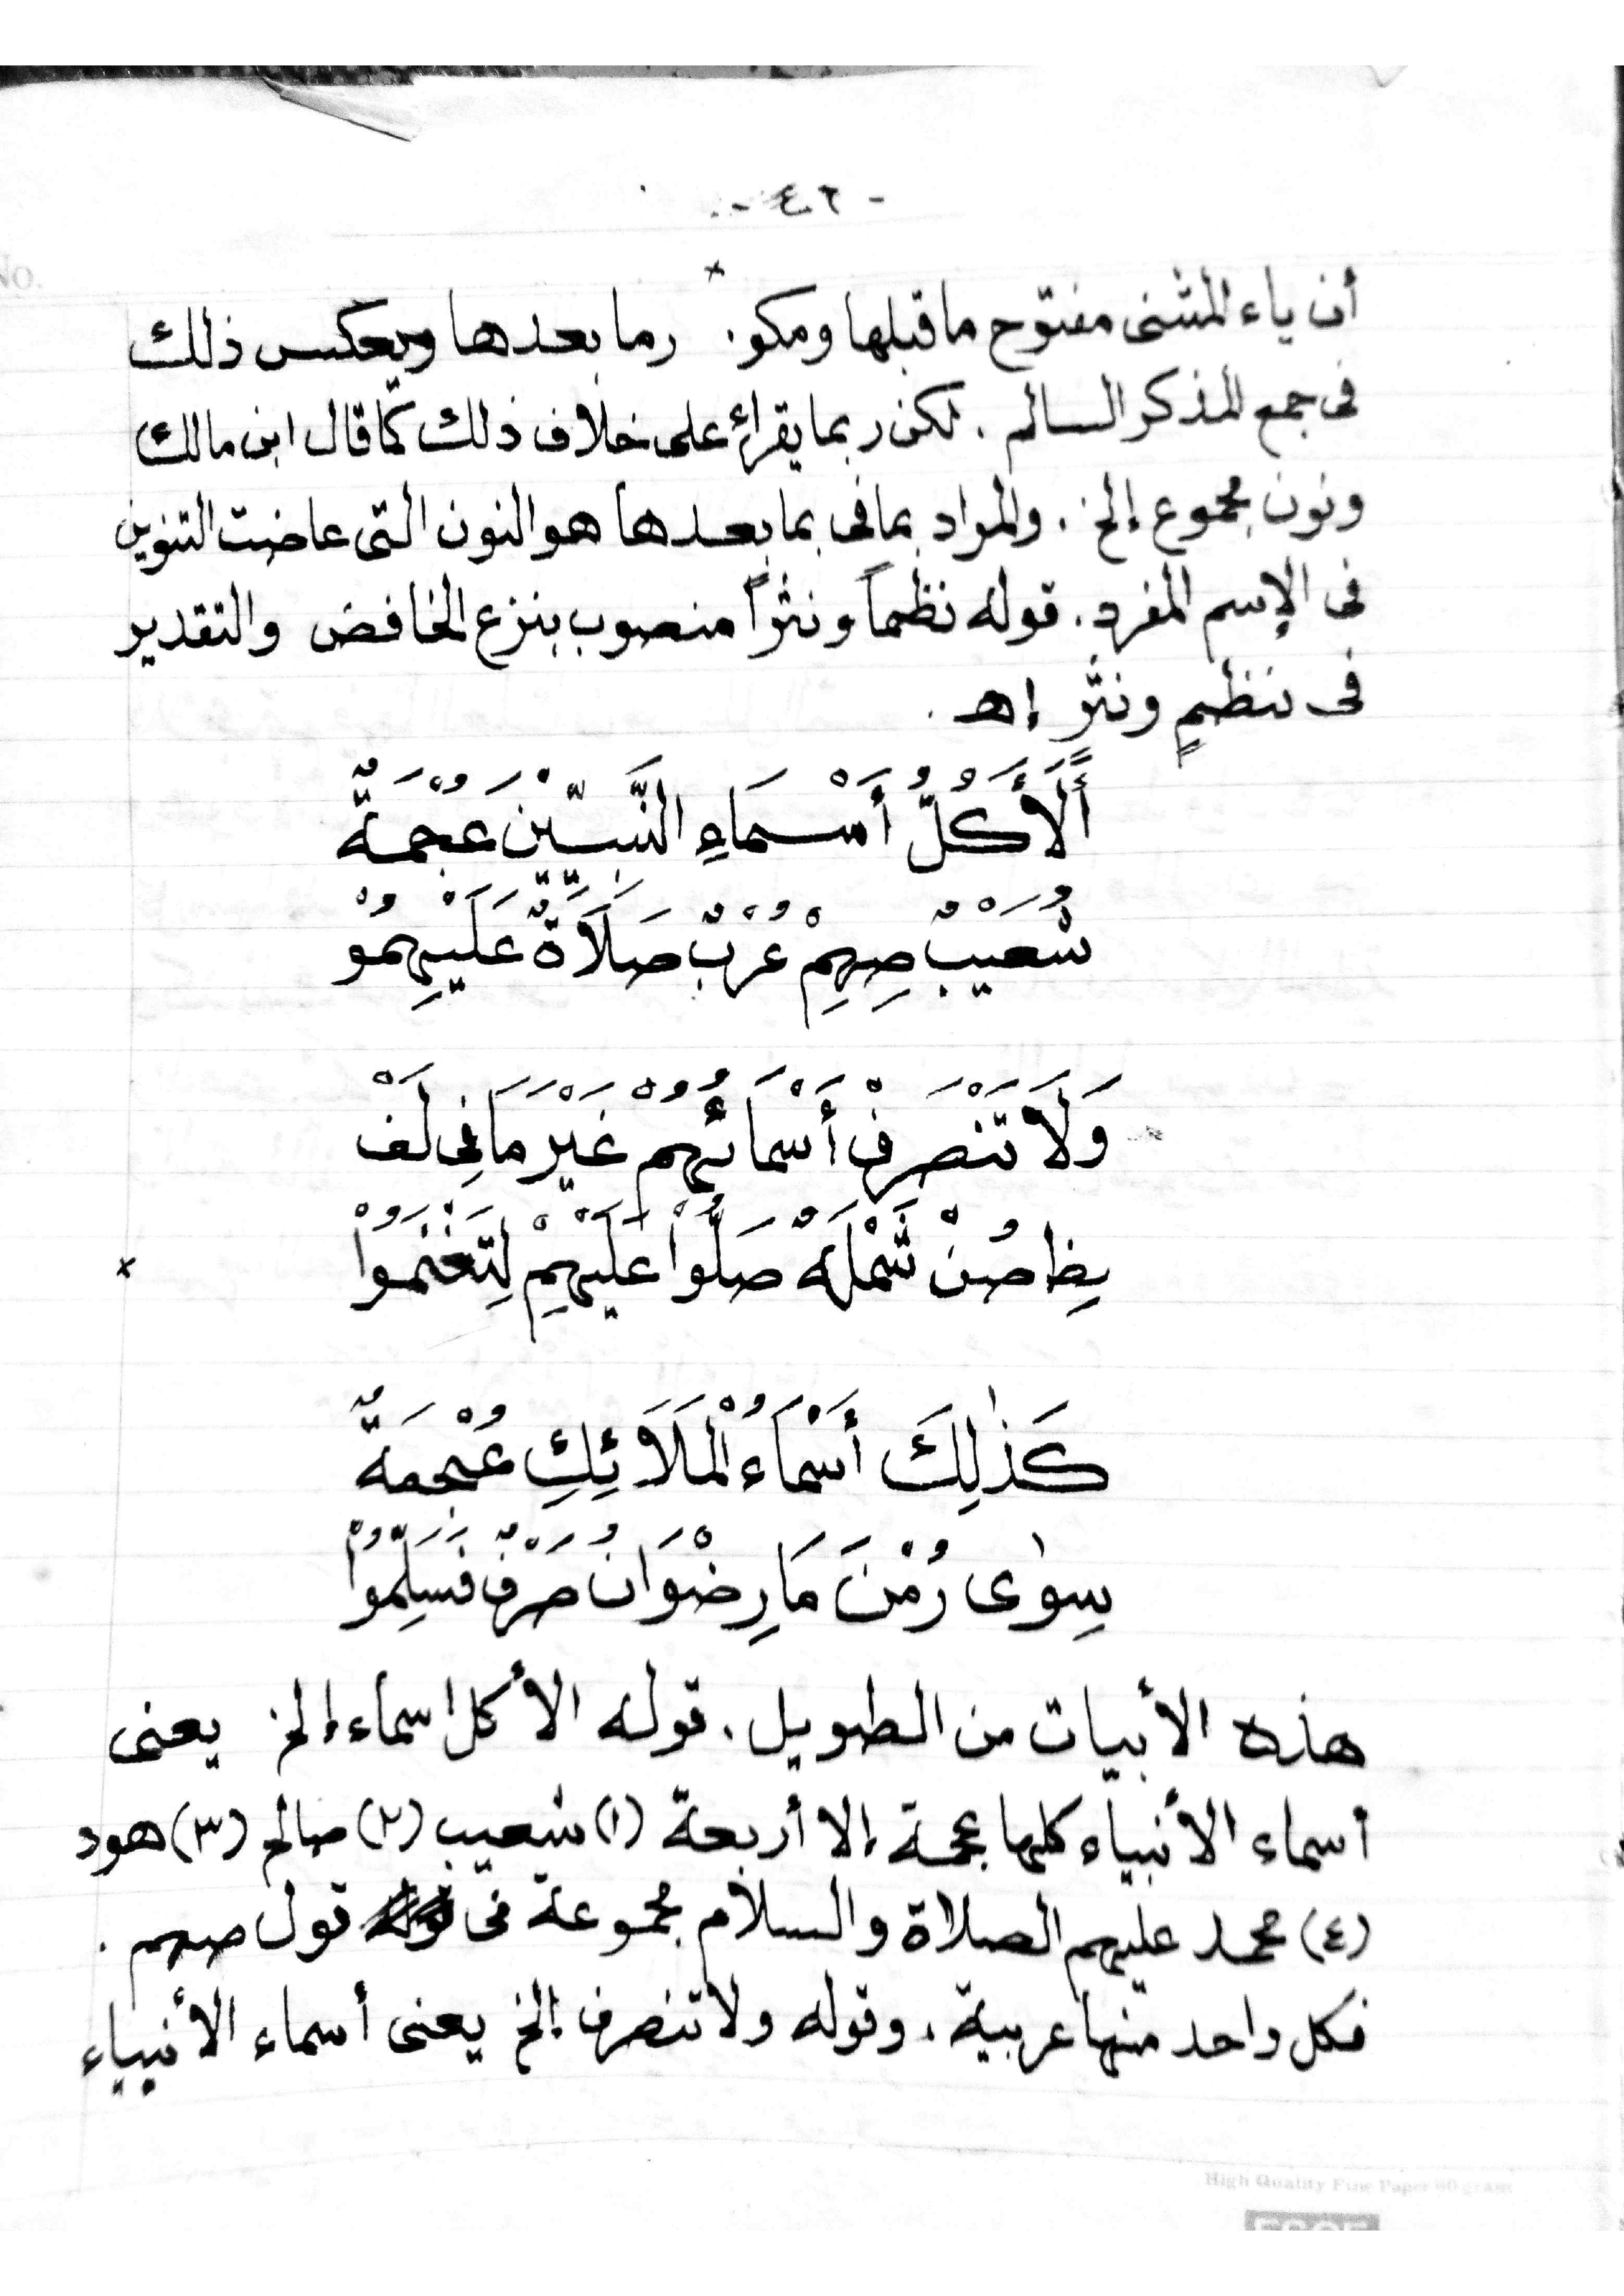 - ٤٢ -
أن ياء المثنى مفتوح ما قبلها ومكو. رما بعدها ويعكس ذلك
فى جمع المذكر السالم . لكن ربما يقرأ على خلاف ذلك كما قال ابن مالك
ونون مجموع إلخ . والمراد بما فى بما بعدها هو النون التى عاضت التنوين
فى الإسم المفرد . قوله نظماً ونثراً منصوب بنزع الخافض والتقدير
فى نظمٍ ونثرٍ إهـ .
أَلَا كُلُّ أَسْمَاءِ النَّبِيِّيْنَ عُجْمَةٌ
شُعَيْبٌ صِهِمْ عُرْبٌ صَلَاةٌ عَلَيْهِمُوْ
وَلَا تَنْصَرِفْ أَسْمَائُهُمْ غَيْرَ مَا فِى لَفْ
بِظِا صُنْ شَمْلَهٌ صَلُّوْا عَلَيْهِمْ لِتَغْنَمُوْا
كَذٰلِكَ أَسْمَاءُ الْمَلَائِكِ عُجْمَةٌ
سِوٰى رُمْنَ مَا رِضْوَانُ صَرْفٌ فَسَلِّمُوْا
هذه الأبيات من الطويل . قوله الأكل اسماء إلخ يعنى
أسماء الأنبياء كلها عجمة إلا أربعة (١) شعيب (٢) صالح (٣) هود
(٤) محمد عليهم الصلاة والسلام مجموعة فى قول صهم .
فكل واحد منها عربية . وقوله ولا تنصرف إلخ يعنى أسماء الأنبياء
High Quality Fine Paper 60 gram